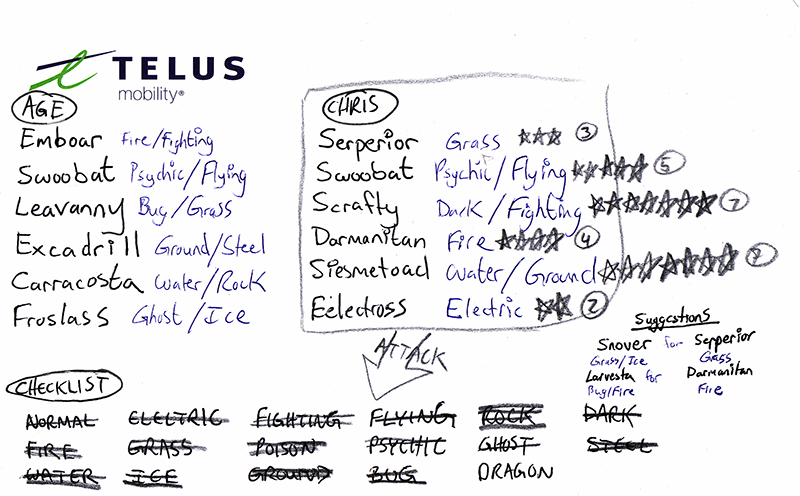 TELUS
mobility®
AGE
Emboar Fire/Fighting
Swoobat Psychic/Flying
Leavanny Bug/Grass
Excadrill Ground/Steel
Carracosta Water/Rock
Froslass Ghost/Ice
CHRIS
Serperior Grass 3
Swoobat Psychic/Flying 5
Scrafty Dark/Fighting 7
Darmanitan Fire 4
Siesmetoad Water/Ground 7
Eelectross Electric 2
ATTACK
Suggestions
Snover for Serperior
Grass/Ice Grass
Larvesta for Darmanitan
Bug/Fire Fire
CHECKLIST
NORMAL ELECTRIC FIGHTING FLYING ROCK DARK
FIRE GRASS POISON PSYCHIC GHOST STEEL
WATER ICE GROUND BUG DRAGON